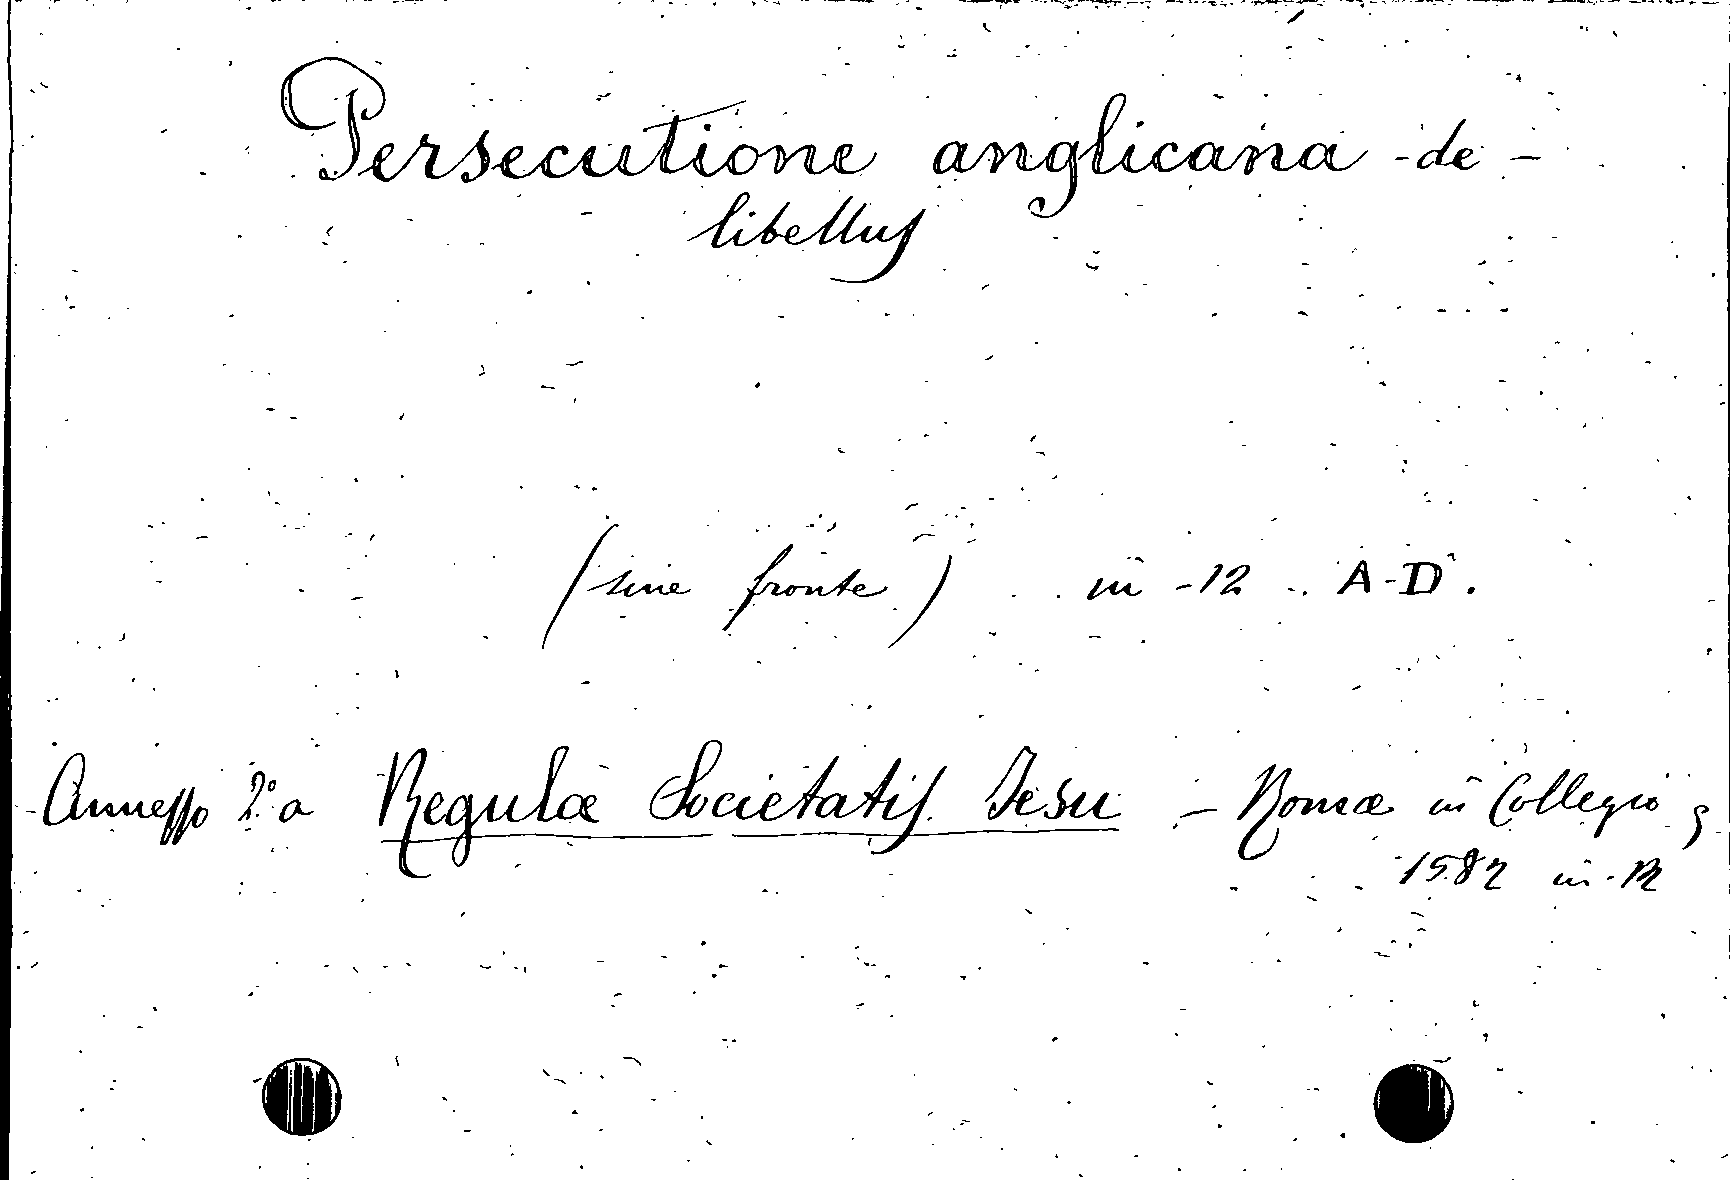 Persecutione anglicana - de -
libellus
(sine fronte) in - 12 . A - D .
Annesso 2° a Regulæ Societatis Jesu - Romæ in Collegio ,
1582 in - 12